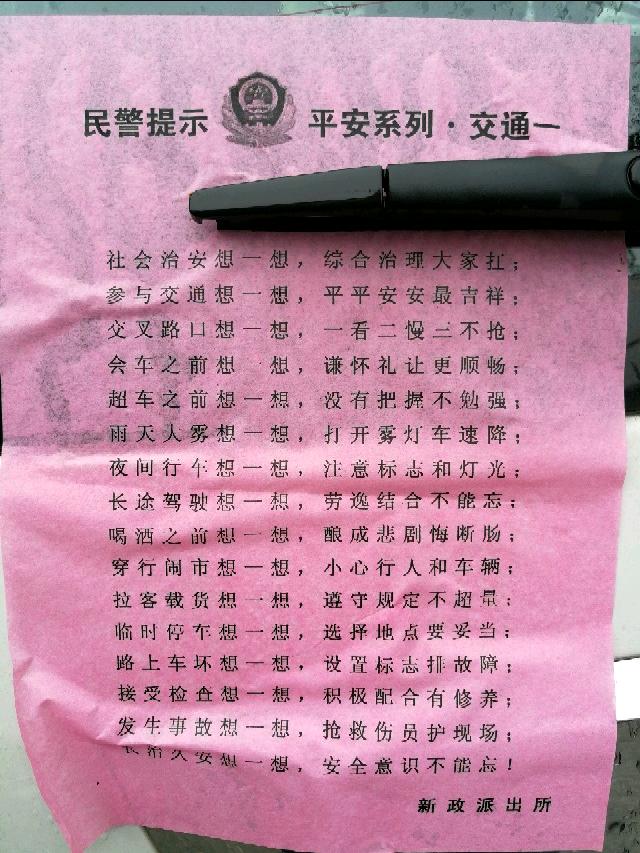 民警提示 平安系列·交通一
社会治安想一想，综合治理大家扛；
参与交通想一想，平平安安最吉祥；
交叉路口想一想，一看二慢三不抢；
会车之前想一想，谦怀礼让更顺畅；
超车之前想一想，没有把握不勉强；
雨天大雾想一想，打开雾灯车速降；
夜间行车想一想，注意标志和灯光；
长途驾驶想一想，劳逸结合不能忘；
喝酒之前想一想，酿成悲剧悔断肠；
穿行闹市想一想，小心行人和车辆；
拉客载货想一想，遵守规定不超量；
临时停车想一想，选择地点要妥当；
路上车坏想一想，设置标志排故障；
接受检查想一想，积极配合有修养；
发生事故想一想，抢救伤员护现场；
长治久安想一想，安全意识不能忘！
新政派出所